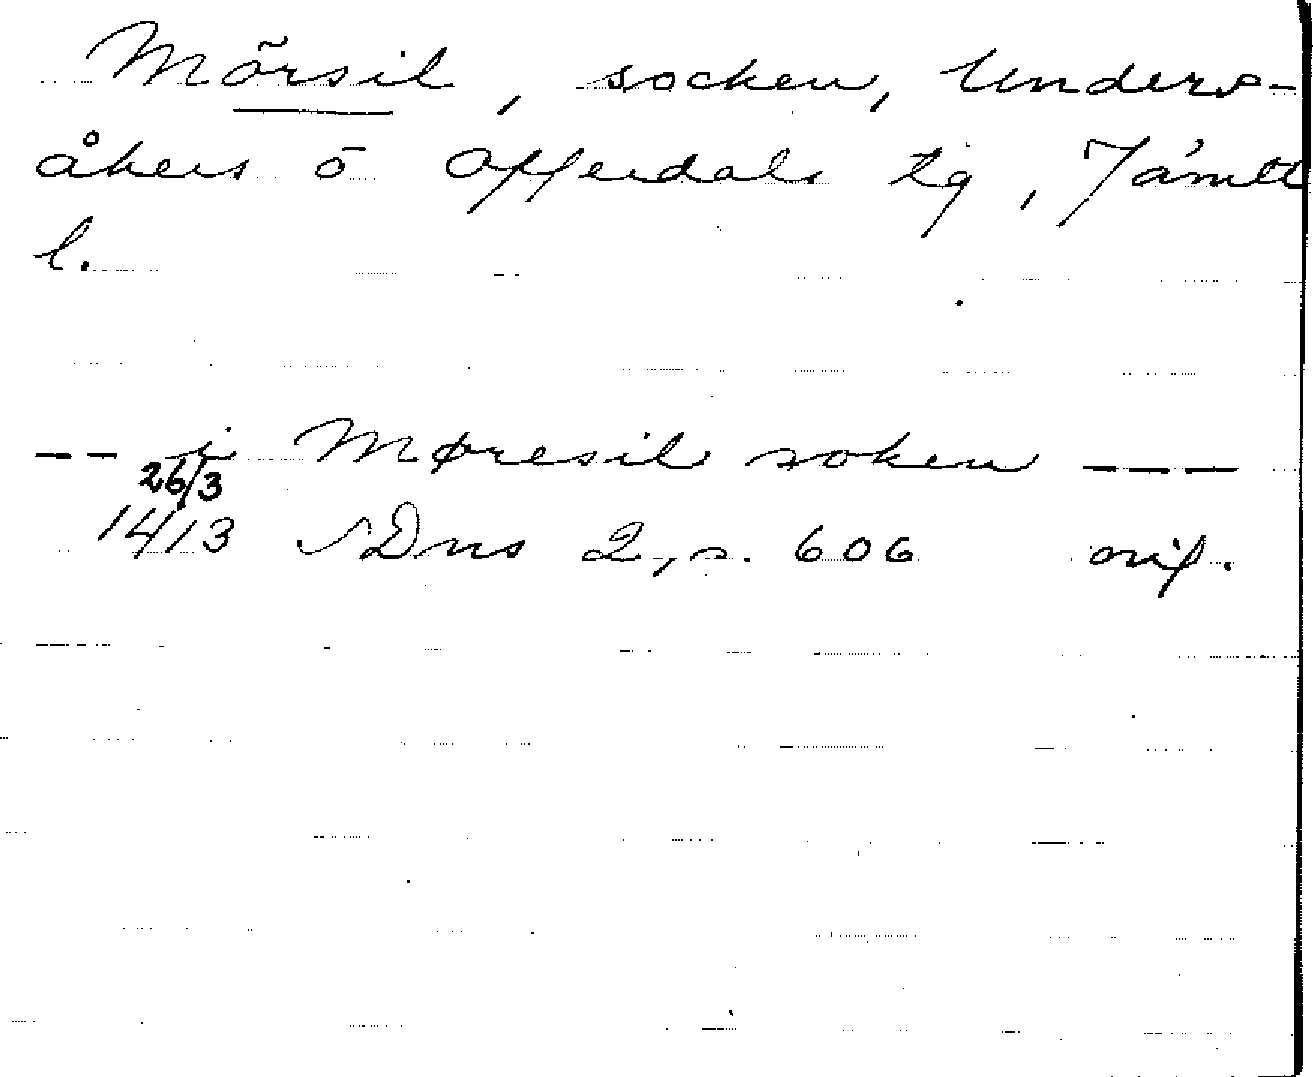 Mörsil, socken, Unders-
åkers o Offerdals tg, Jämtl
l.
-- i Møresil soken ---
26/3
1413 SDns 2, s. 606 orig.